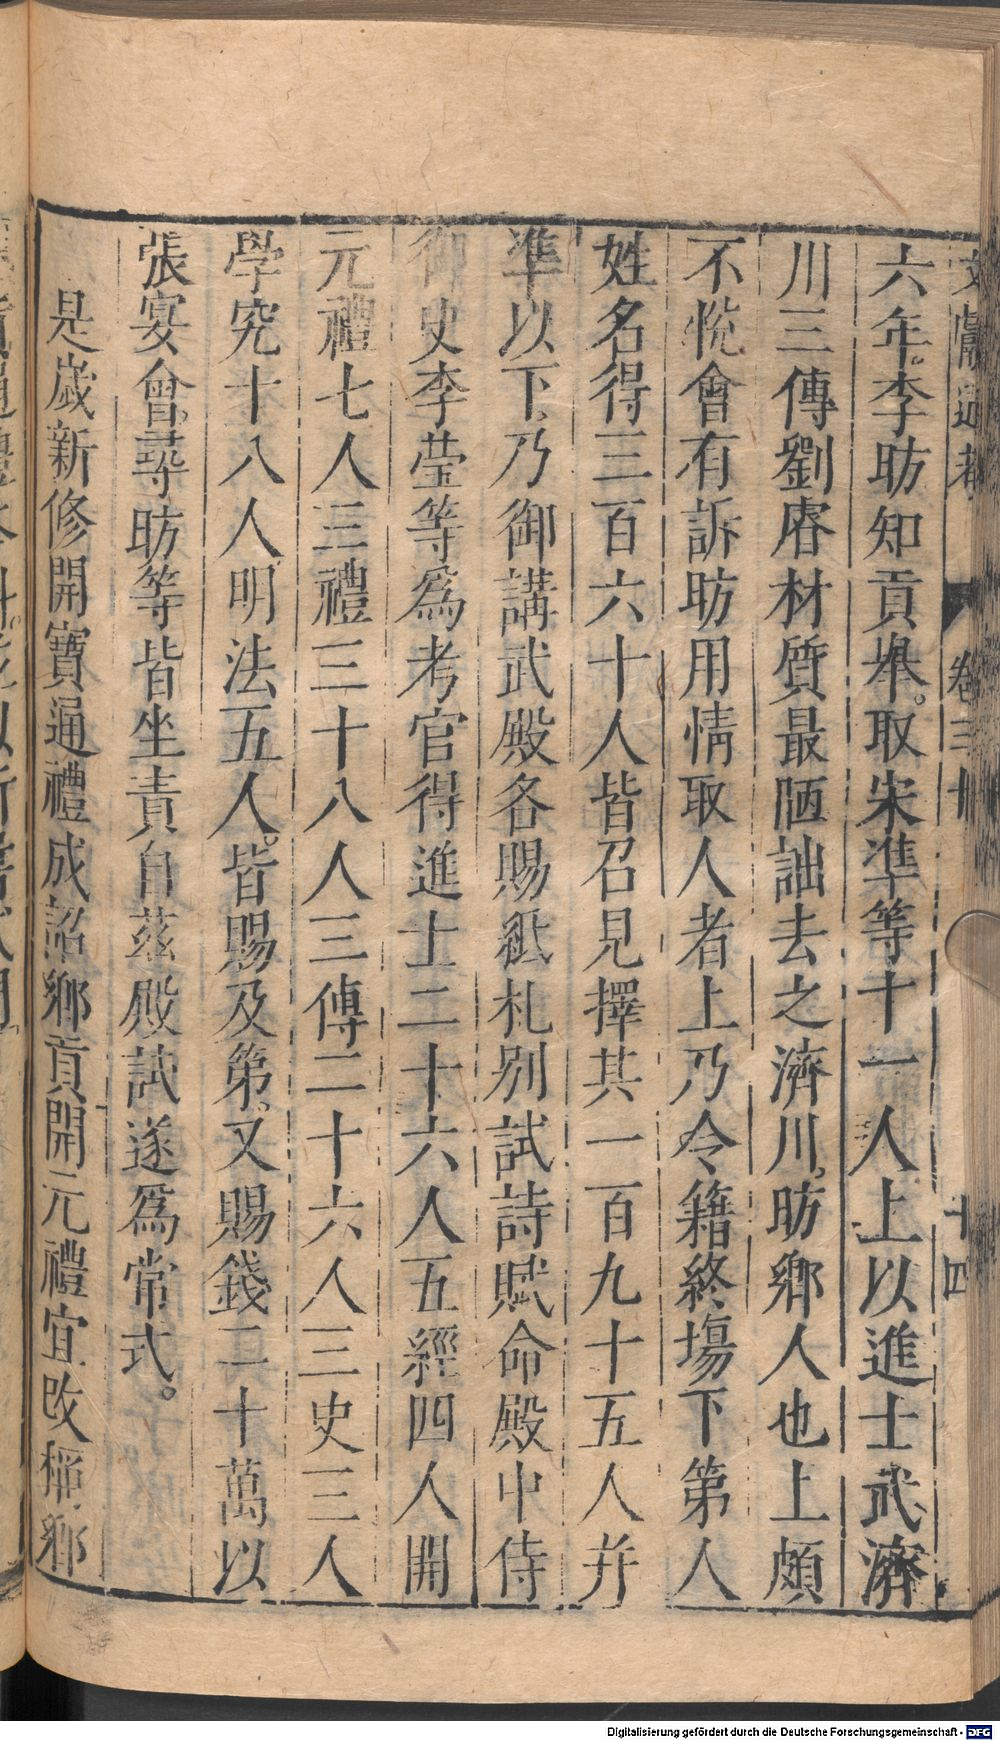 文獻通考 卷三十 十四
六年李昉知貢舉取宋準等十一人上以進士武濟
川三傳劉睿材質最陋詘去之濟川昉鄉人也上頗
不悅會有訴昉用情取人者上乃令籍終場下第人
姓名得三百六十人皆召見擇其一百九十五人并
準以下乃御講武殿各賜紙札別試詩賦命殿中侍
御史李瑩等爲考官得進士二十六人五經四人開
元禮七人三禮三十八人三傳二十六人三史三人
學究十八人明法五人皆賜及第又賜錢二十萬以
張宴會尋昉等皆坐責自茲殿試遂爲常式
是歲新修開寶通禮成詔鄉貢開元禮宜改稱鄉
Digitalisierung gefördert durch die Deutsche Forschungsgemeinschaft - DFG